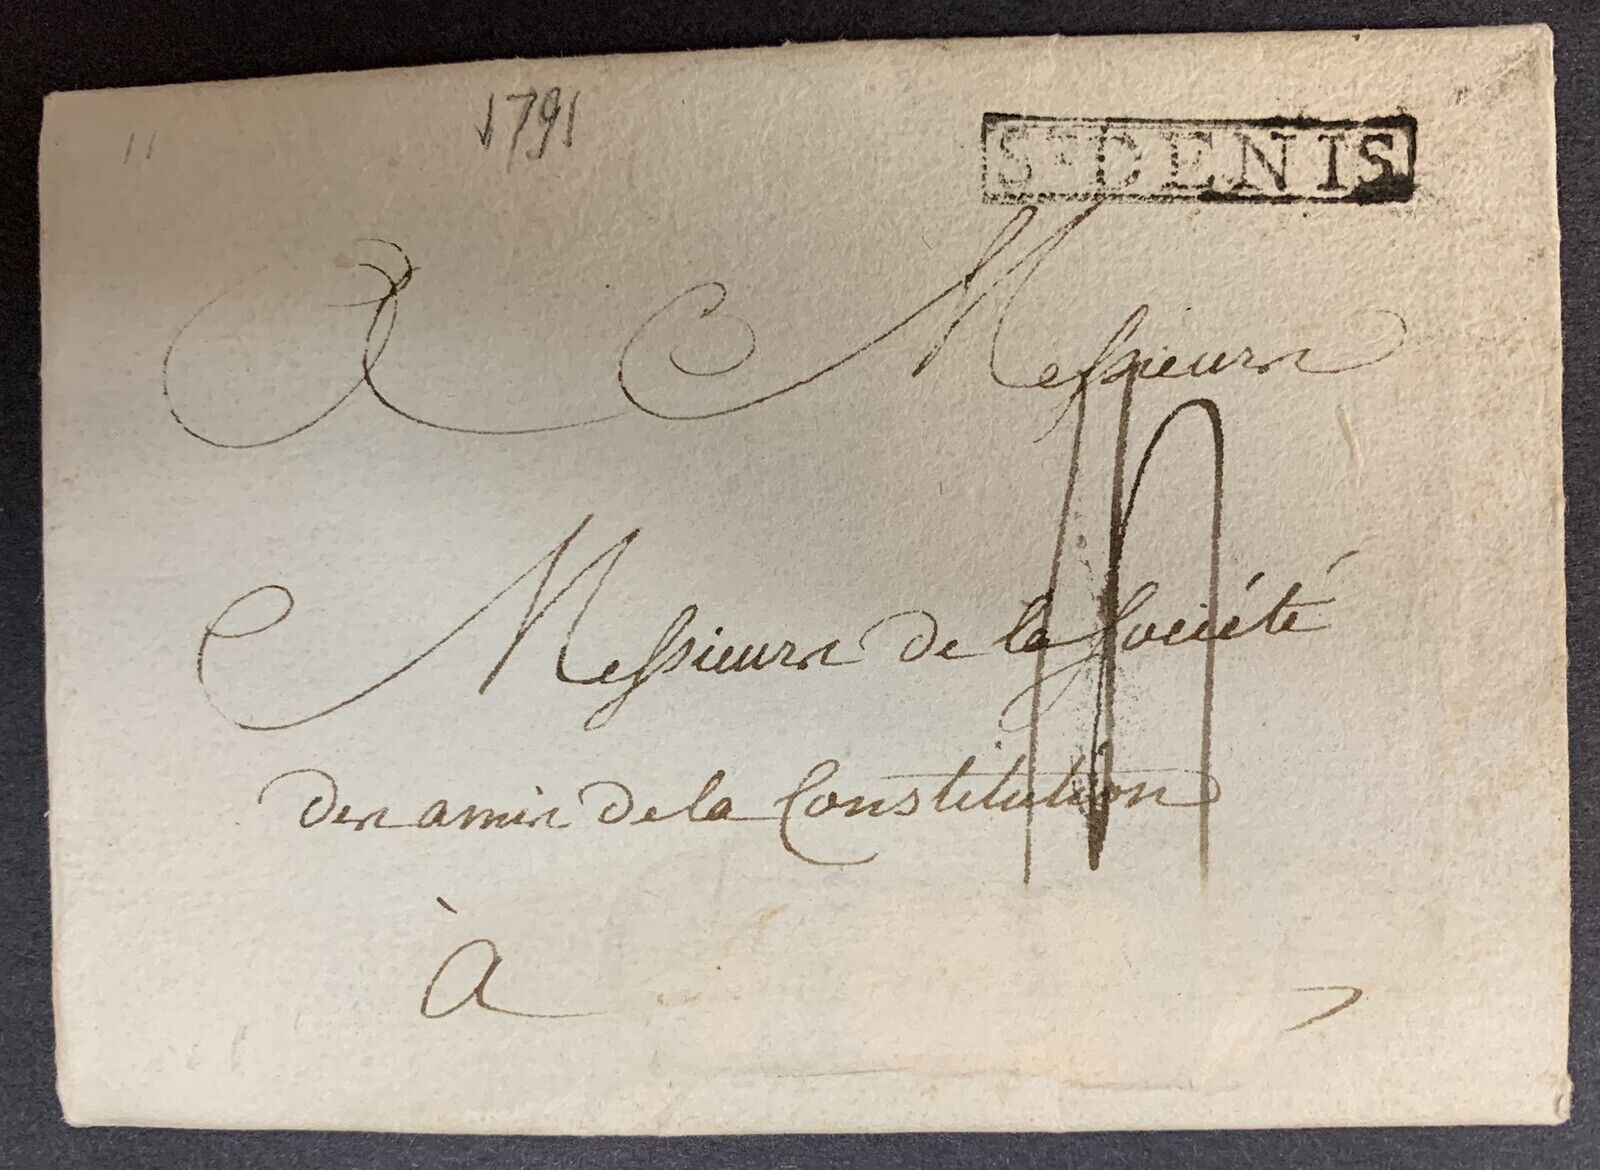 1791
ST DENIS
A Messieurs
Messieurs de la Société
des amis de la Constitution
à